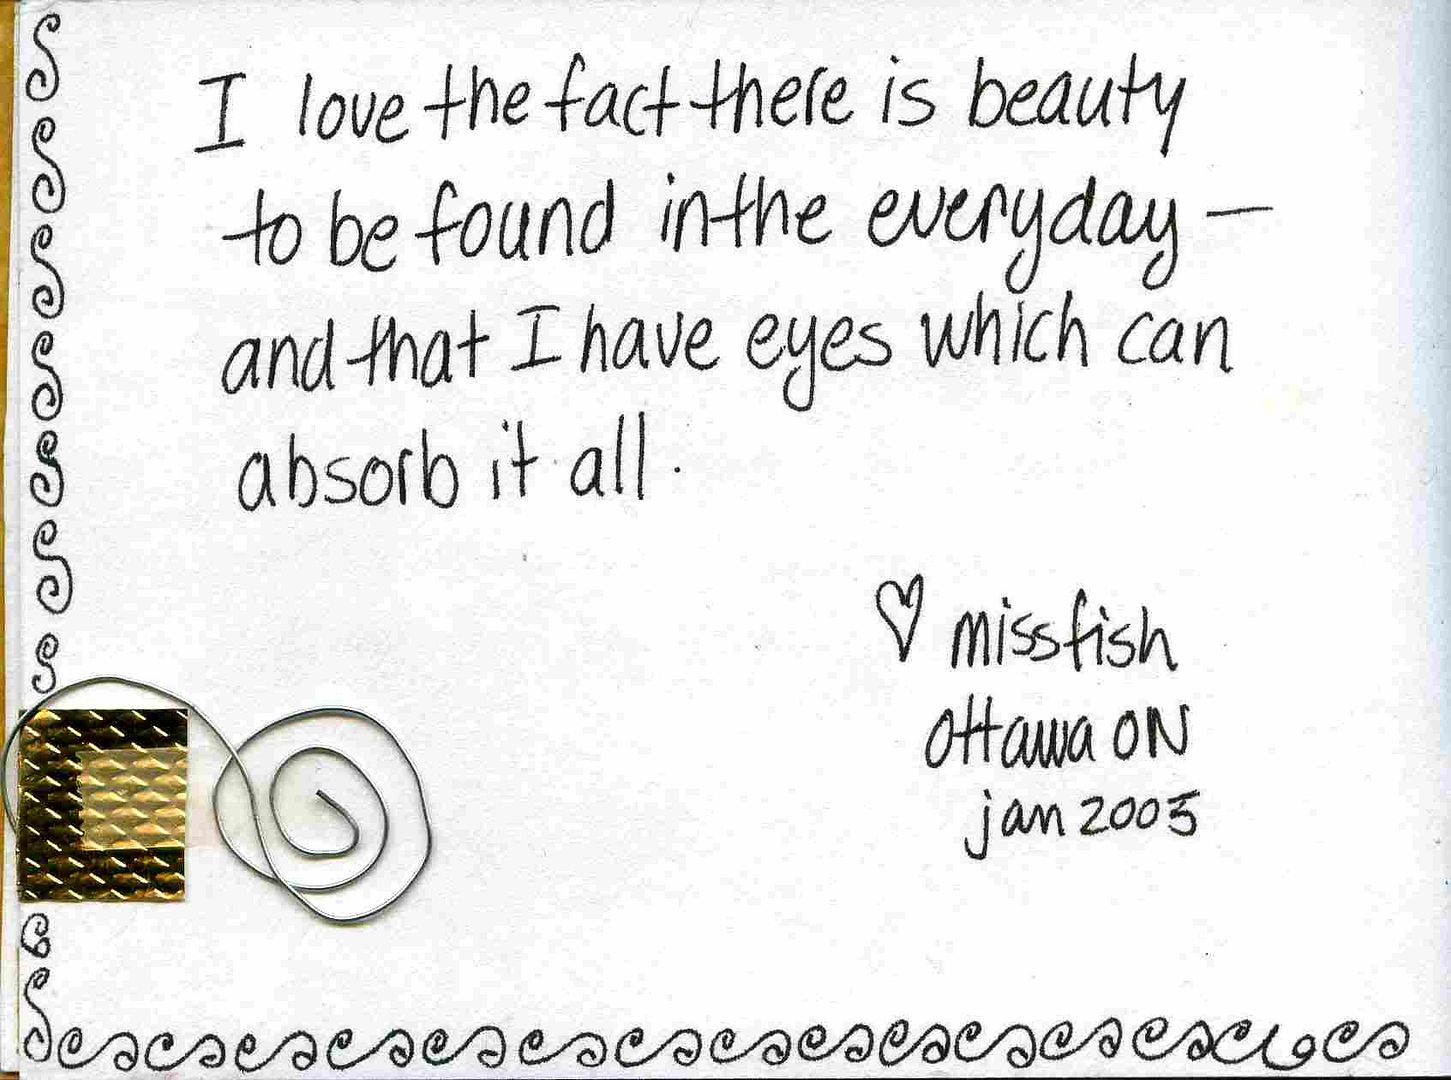 I love the fact there is beauty
to be found in the everyday —
and that I have eyes which can
absorb it all.
♡ missfish
Ottawa ON
jan 2005